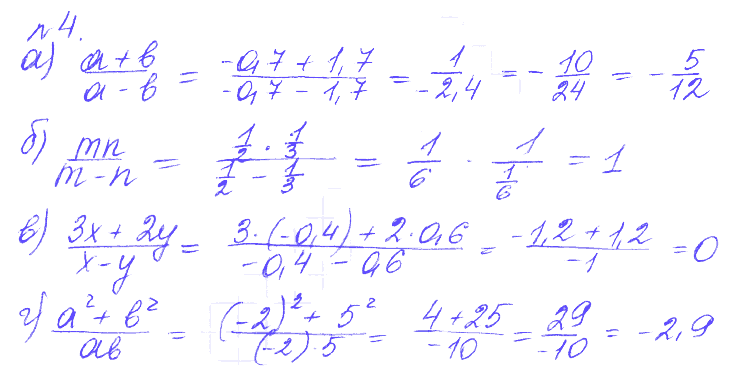 №4.
а) (a + b)/(a - b) = (-0,7 + 1,7)/(-0,7 - 1,7) = 1/(-2,4) = -10/24 = -5/12
б) mn/(m - n) = (1/2 · 1/3)/(1/2 - 1/3) = 1/6 · 1/(1/6) = 1
в) (3x + 2y)/(x - y) = (3·(-0,4) + 2·0,6)/(-0,4 - 0,6) = (-1,2 + 1,2)/(-1) = 0
г) (a² + b²)/(ab) = ((-2)² + 5²)/((-2)·5) = (4 + 25)/(-10) = 29/(-10) = -2,9